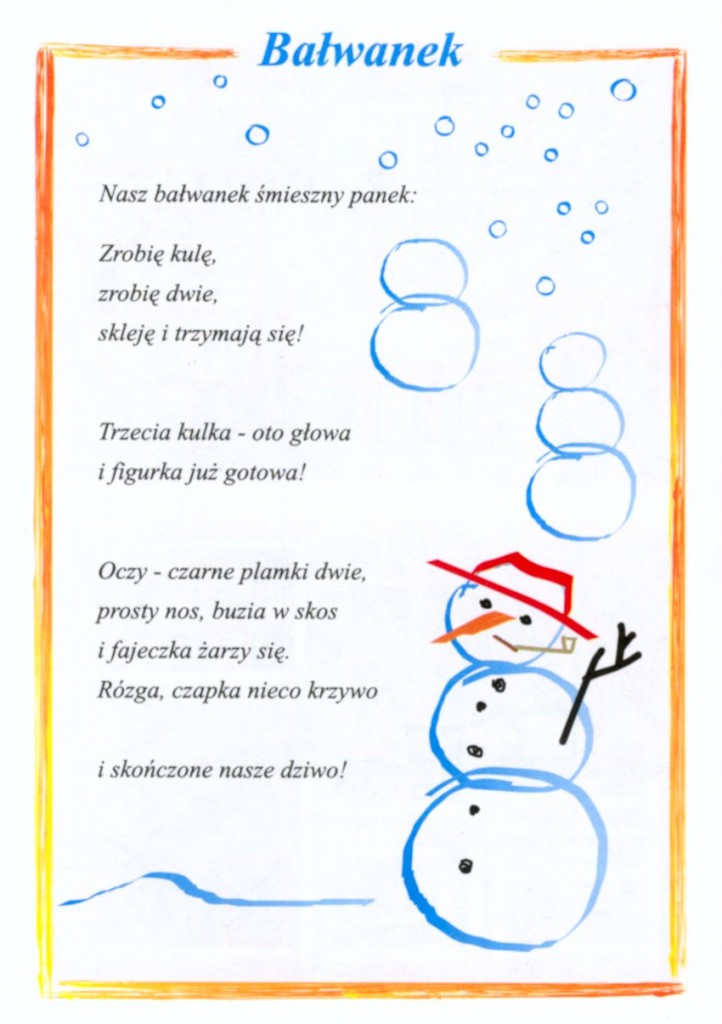 Bałwanek
Nasz bałwanek śmieszny panek:
Zrobię kulę,
zrobię dwie,
skleję i trzymają się!
Trzecia kulka - oto głowa
i figurka już gotowa!
Oczy - czarne plamki dwie,
prosty nos, buzia w skos
i fajeczka żarzy się.
Rózga, czapka nieco krzywo
i skończone nasze dziwo!